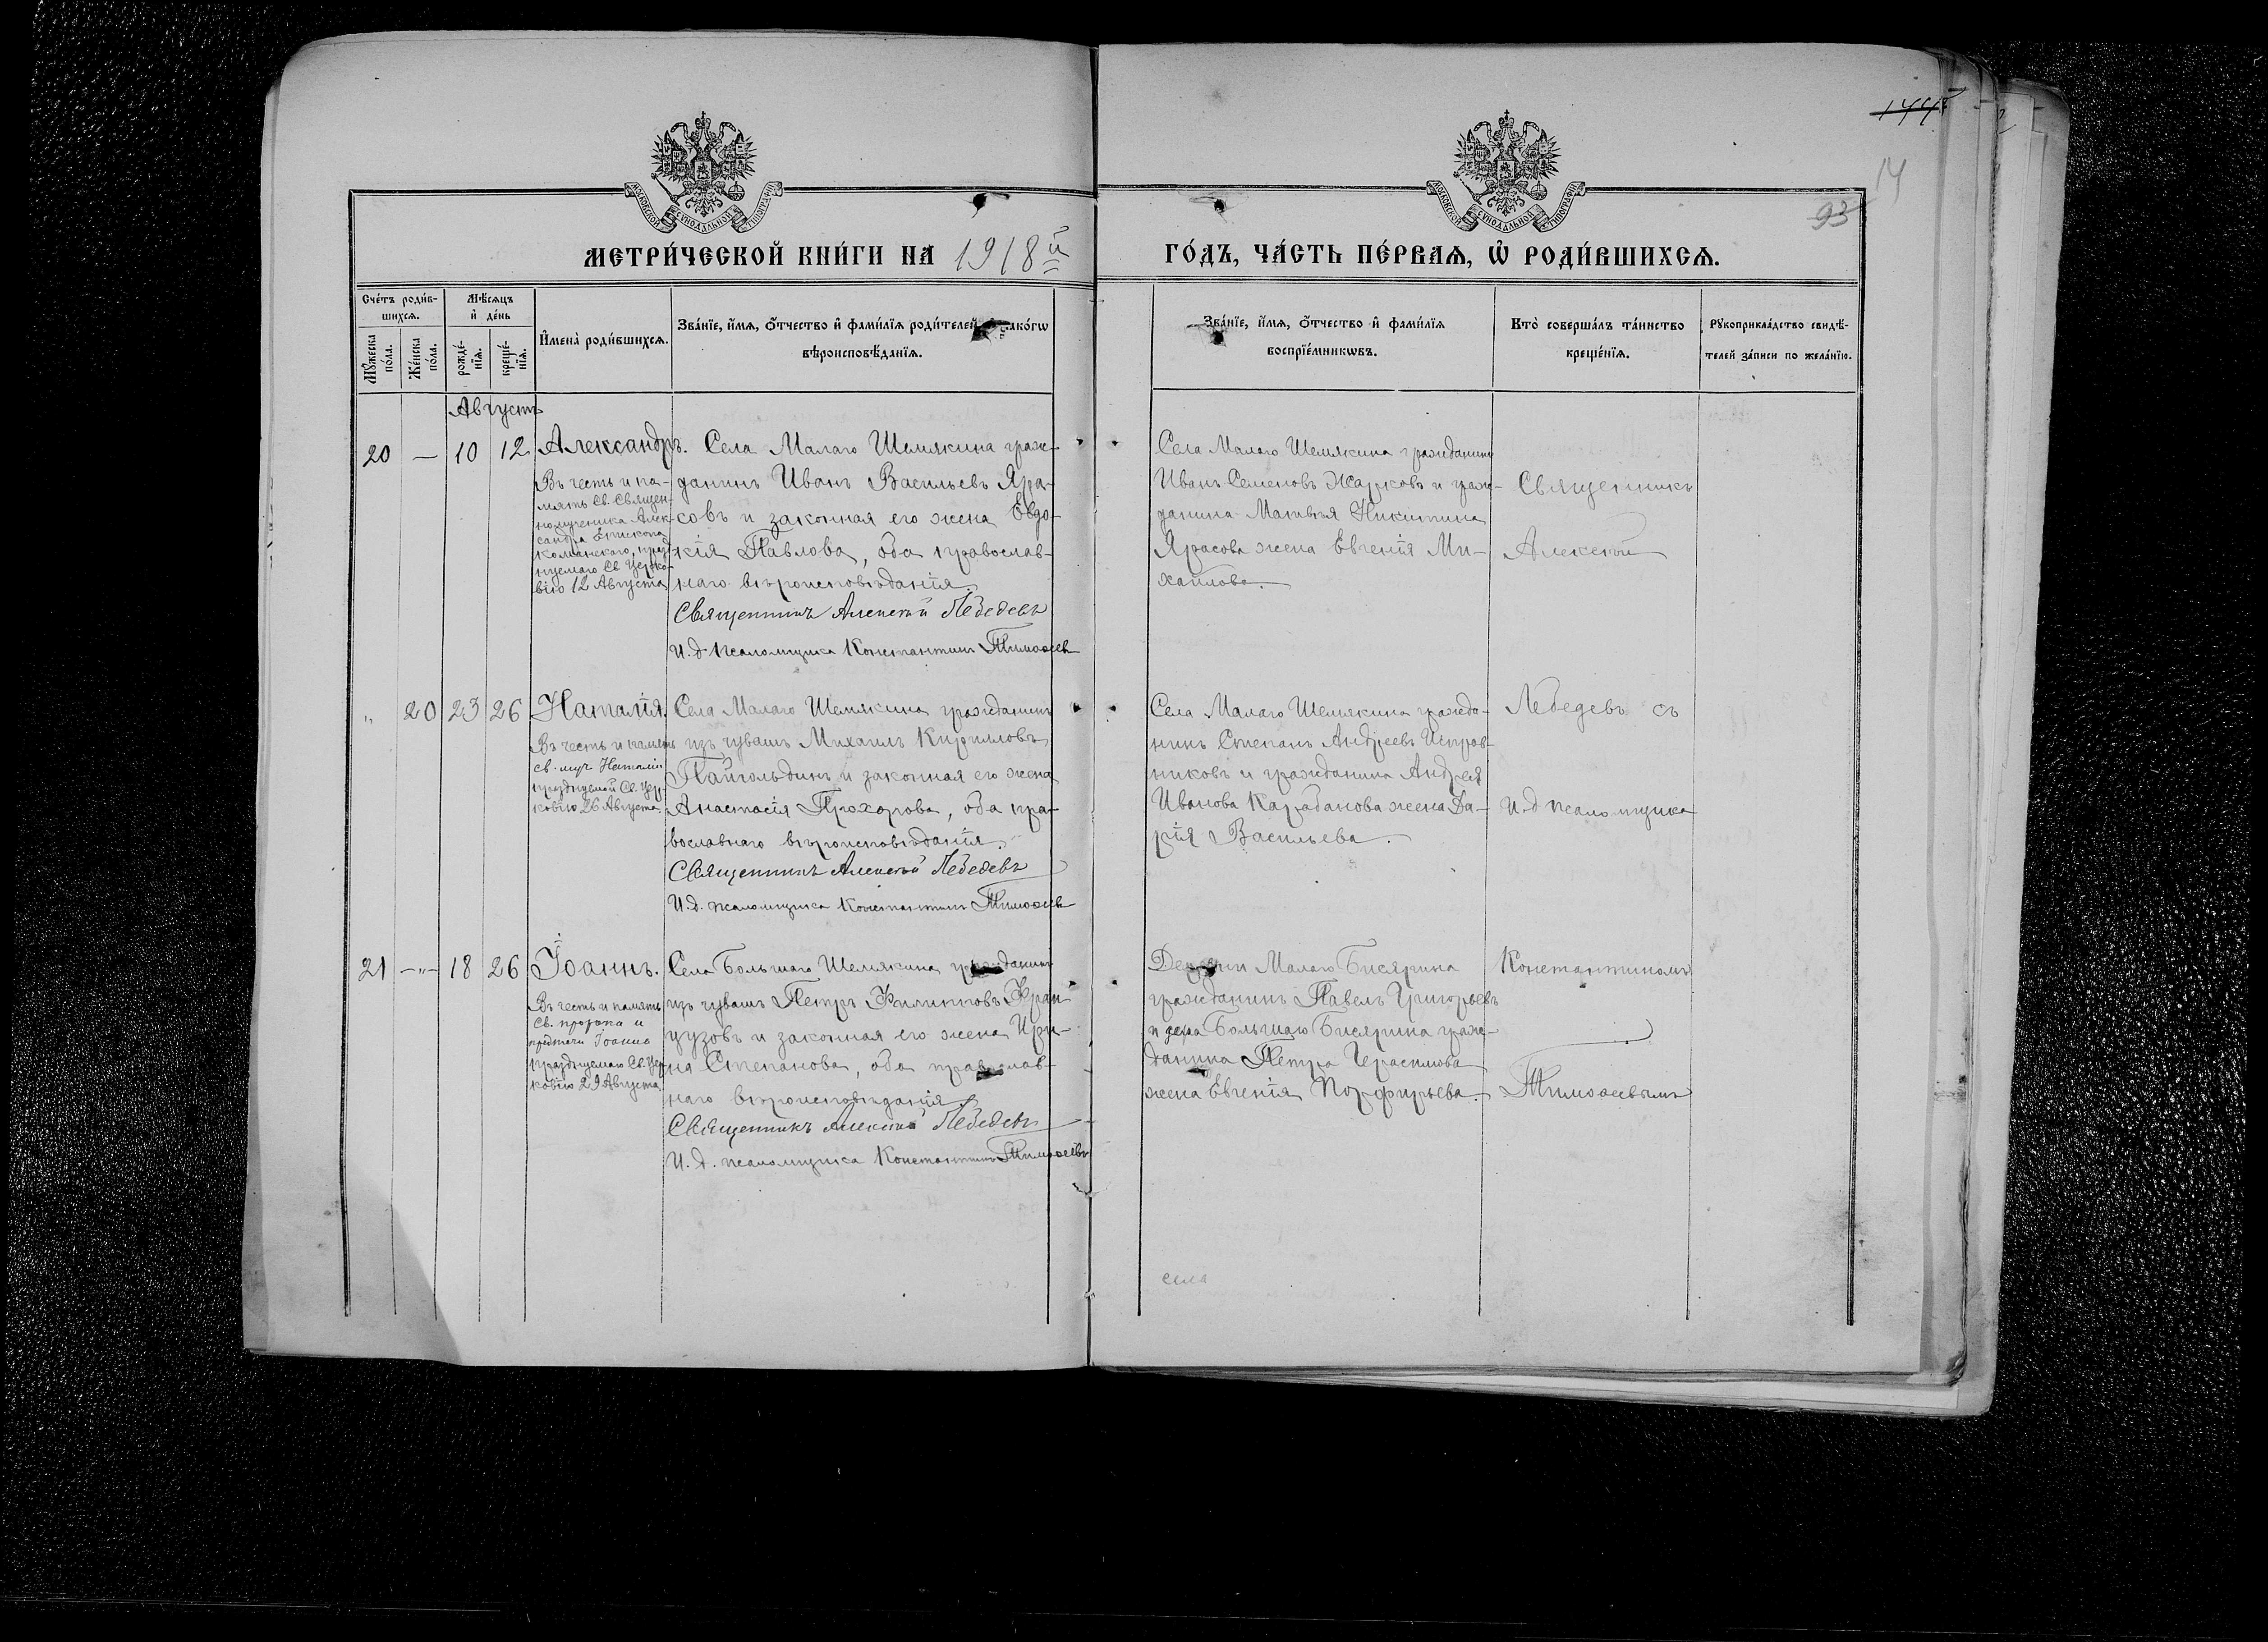 144
14
93
МОСКОВСКОЙ СѴНОДАЛЬНОЙ ТИПОГРАФІИ
МОСКОВСКОЙ СѴНОДАЛЬНОЙ ТИПОГРАФІИ
МЕТРИ́ЧЕСКОЙ КНИ́ГИ НА 1918й
ГО́ДЪ, ЧА́СТЬ ПЕ́РВАѦ, Ѡ҆ РОДИ́ВШИХСѦ.
Сче́тъ роди́в-
шихсѧ.
Мꙋ́жеска по́ла.
Же́нска по́ла.
Мѣ́сѧцъ
и҆ де́нь
рожде́-
нїѧ.
креще́-
нїѧ.
И҆мена̀ роди́вшихсѧ.
Зва́нїе, и҆́мѧ, ѻ҆́тчество и҆ фами́лїѧ роди́телей, и҆ како́гѡ
вѣроисповѣ́данїѧ.
Зва́нїе, и҆́мѧ, ѻ҆́тчество и҆ фами́лїѧ
воспрїе́мникѡвъ.
Кто̀ соверша́лъ та́инство
креще́нїѧ.
Рꙋкоприкла́дство свидѣ́-
телей за́писи по жела́нїю.
Августъ
20 — 10 12 Александръ.
Въ честь и па-
мять Св. Священ-
номученика Алек-
сандра Епископа
Команскаго, праз-
нуемаго Св. Церко-
вію 12 Августа
Села Малаго Шемякина граж-
данинъ Иванъ Васильевъ Яра-
совъ и законная его жена Евдо-
кія Павлова, оба православ-
наго вѣроисповѣданія.
Священникъ Алексѣй Лебедевъ
И. д. псаломщика Константинъ Тимоѳеев
Села Малаго Шемякина гражданинъ
Иванъ Семеновъ Жарковъ и граж-
данина Матвѣя Никитина
Ярасова жена Евгенія Ми-
хайлова.
Священникъ
Алексѣй
„ 20 23 26 Наталія.
Въ честь и память
св. муч. Наталіи
празднуемой Св. Цер-
ковію 26 Августа.
Села Малаго Шемякина гражданинъ
изъ чувашъ Михаилъ Кирилловъ
Пайгольдинъ и законная его жена
Анастасія Прохорова, оба пра-
вославнаго вѣроисповѣданія.
Священникъ Алексѣй Лебедевъ
И. д. псаломщика Константинъ Тимоѳеев
Села Малаго Шемякина гражда-
нинъ Степанъ Андреевъ Исправ-
никовъ и гражданина Андрея
Иванова Карабанова жена Да-
рія Васильева.
Лебедевъ съ
И. д. псаломщика
21 —„— 18 26 Іоаннъ.
Въ честь и память
Св. пророка и
предтечи Іоанна
празднуемаго Св. Цер-
ковію 29 Августа.
Села Большаго Шемякина гражданинъ
изъ чувашъ Петръ Филипповъ Фран-
цузовъ и законная его жена Ири-
на Степанова, оба православ-
наго вѣроисповѣданія.
Священникъ Алексѣй Лебедевъ
И. д. псаломщика Константинъ Тимоѳеевъ
Деревни Малаго Бисярина
гражданинъ Павелъ Григорьевъ
и села Большаго Бисярина граж-
данина Петра Герасимова
жена Евгенія Порфирьева.
Константиномъ
Тимоѳеевымъ
села